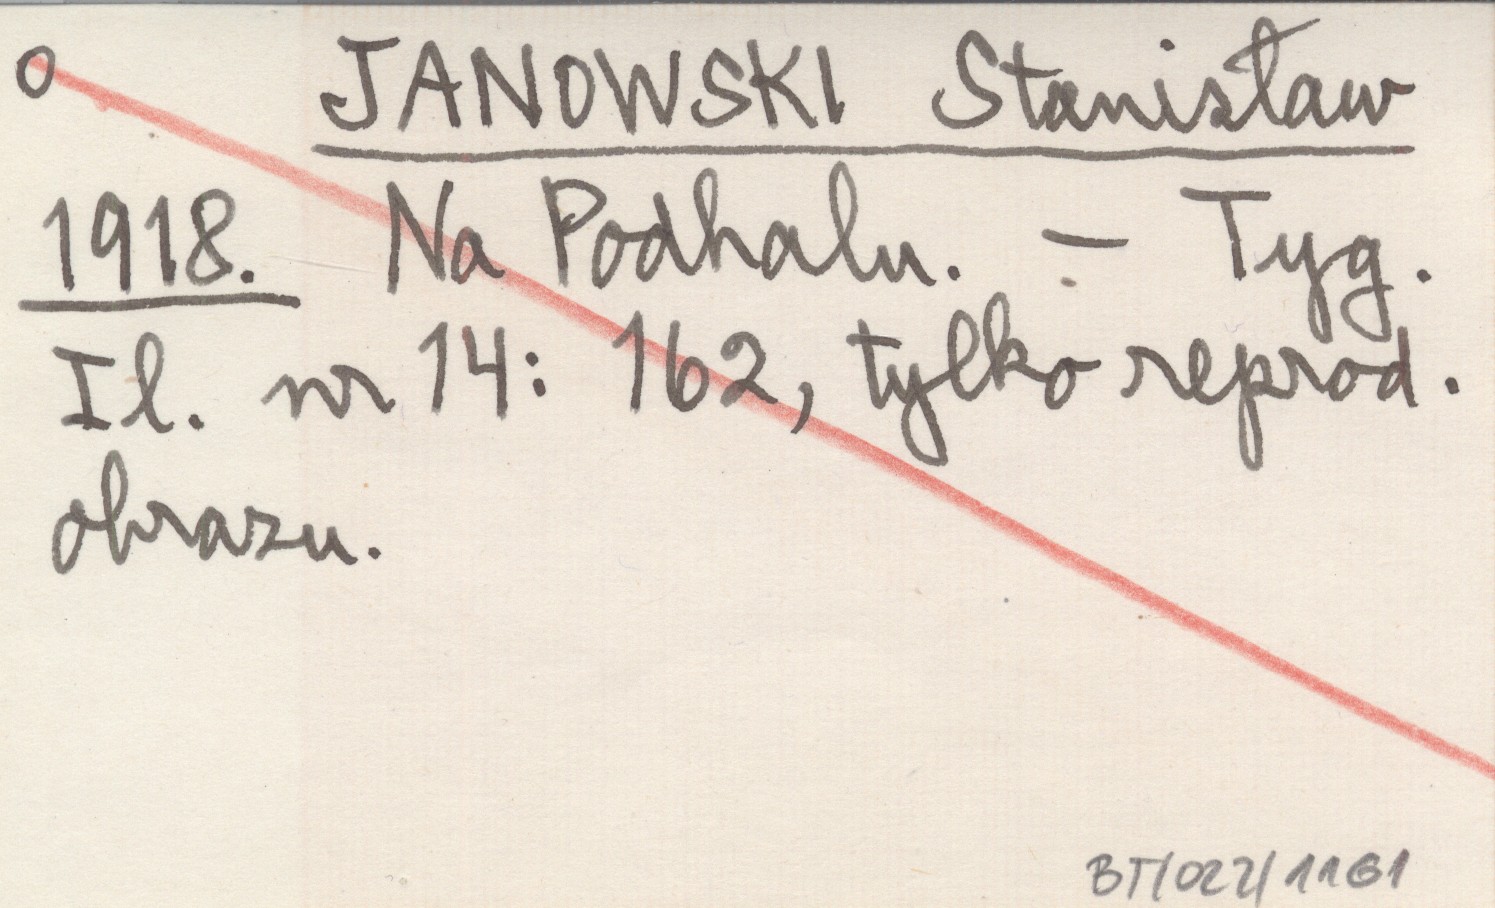 O JANOWSKI Stanisław
1918. Na Podhalu. – Tyg.
Il. nr 14: 162, tylko reprod.
obrazu.
BT/022/1161